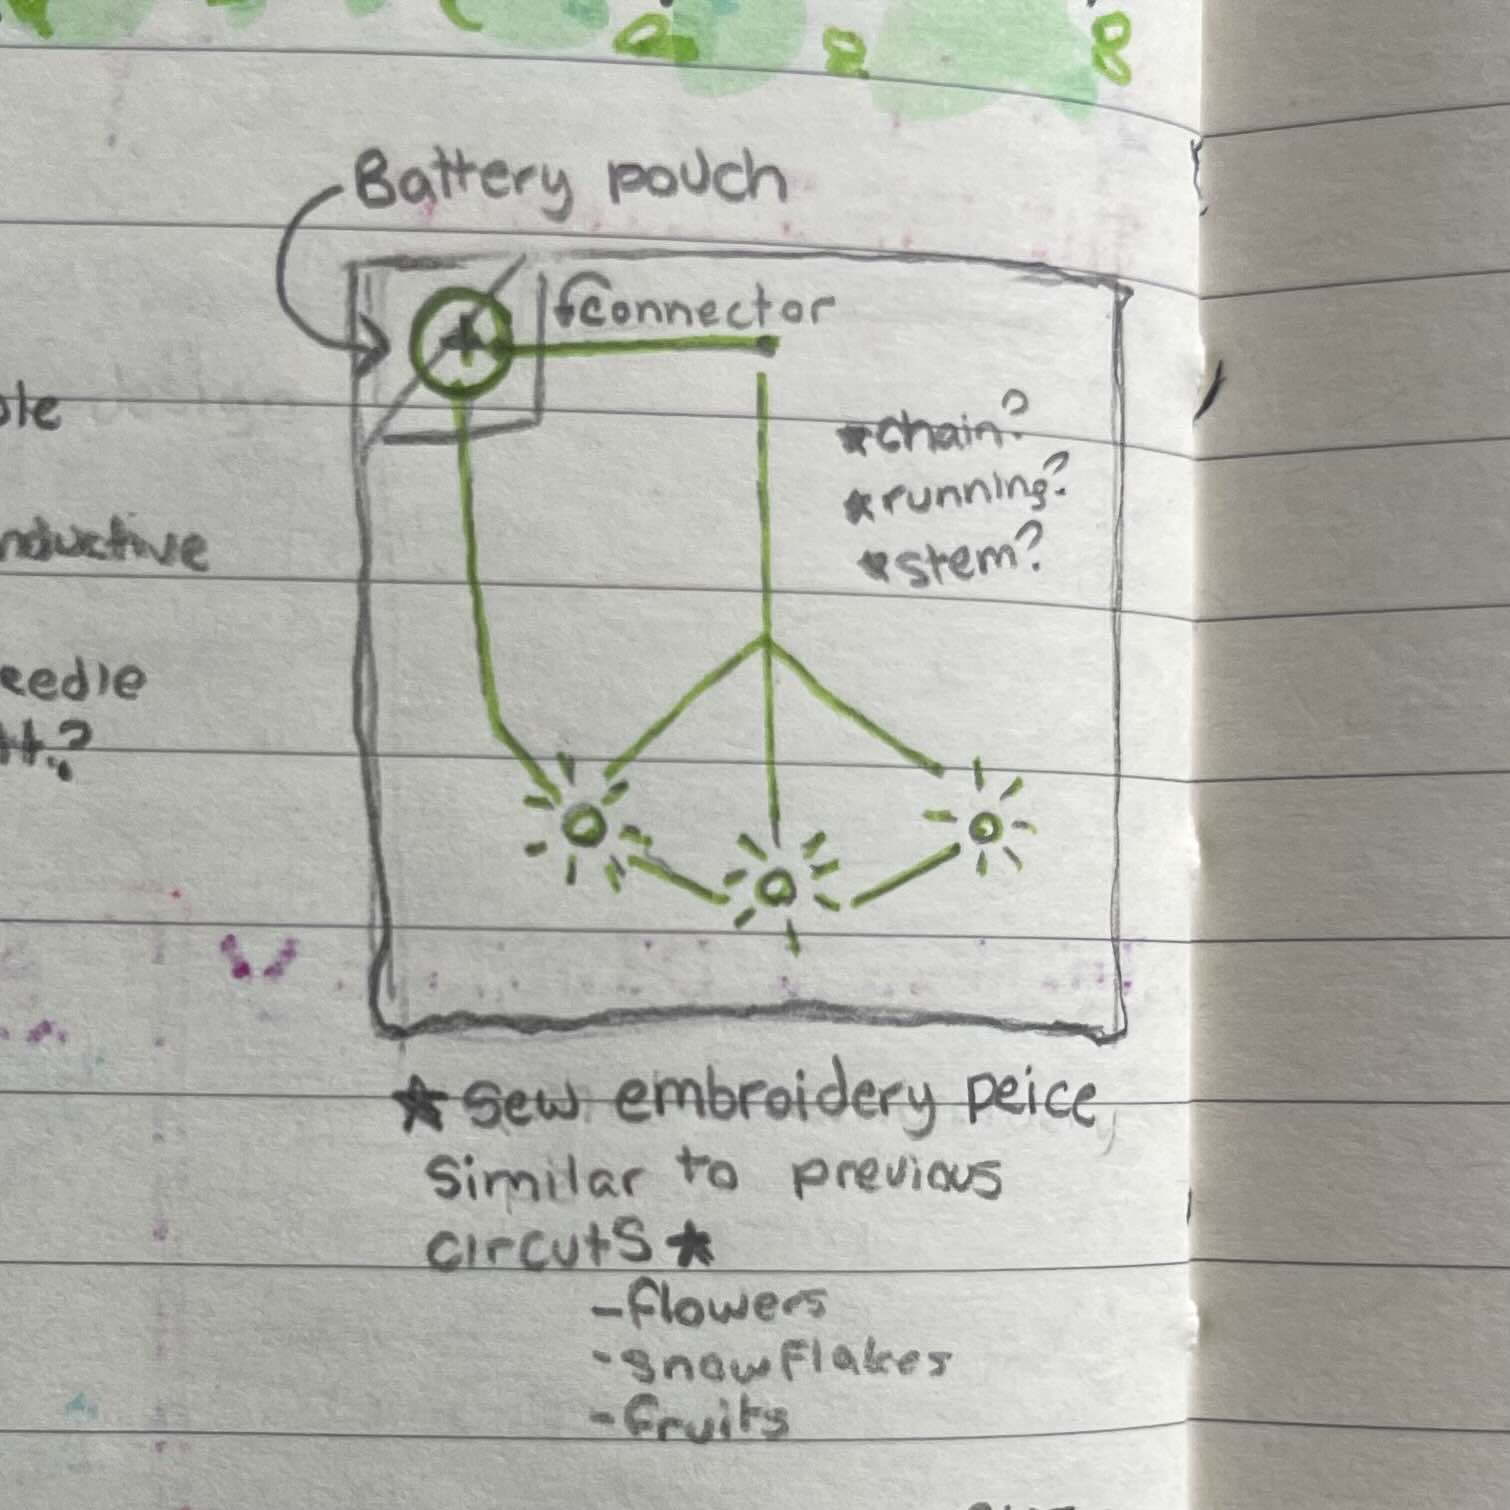 Battery pouch
+
Connector
*chain?
*running?
*stem?
eedle
★ Sew embroidery peice
Similar to previous
circuts ★
-flowers
-snowflakes
-fruits